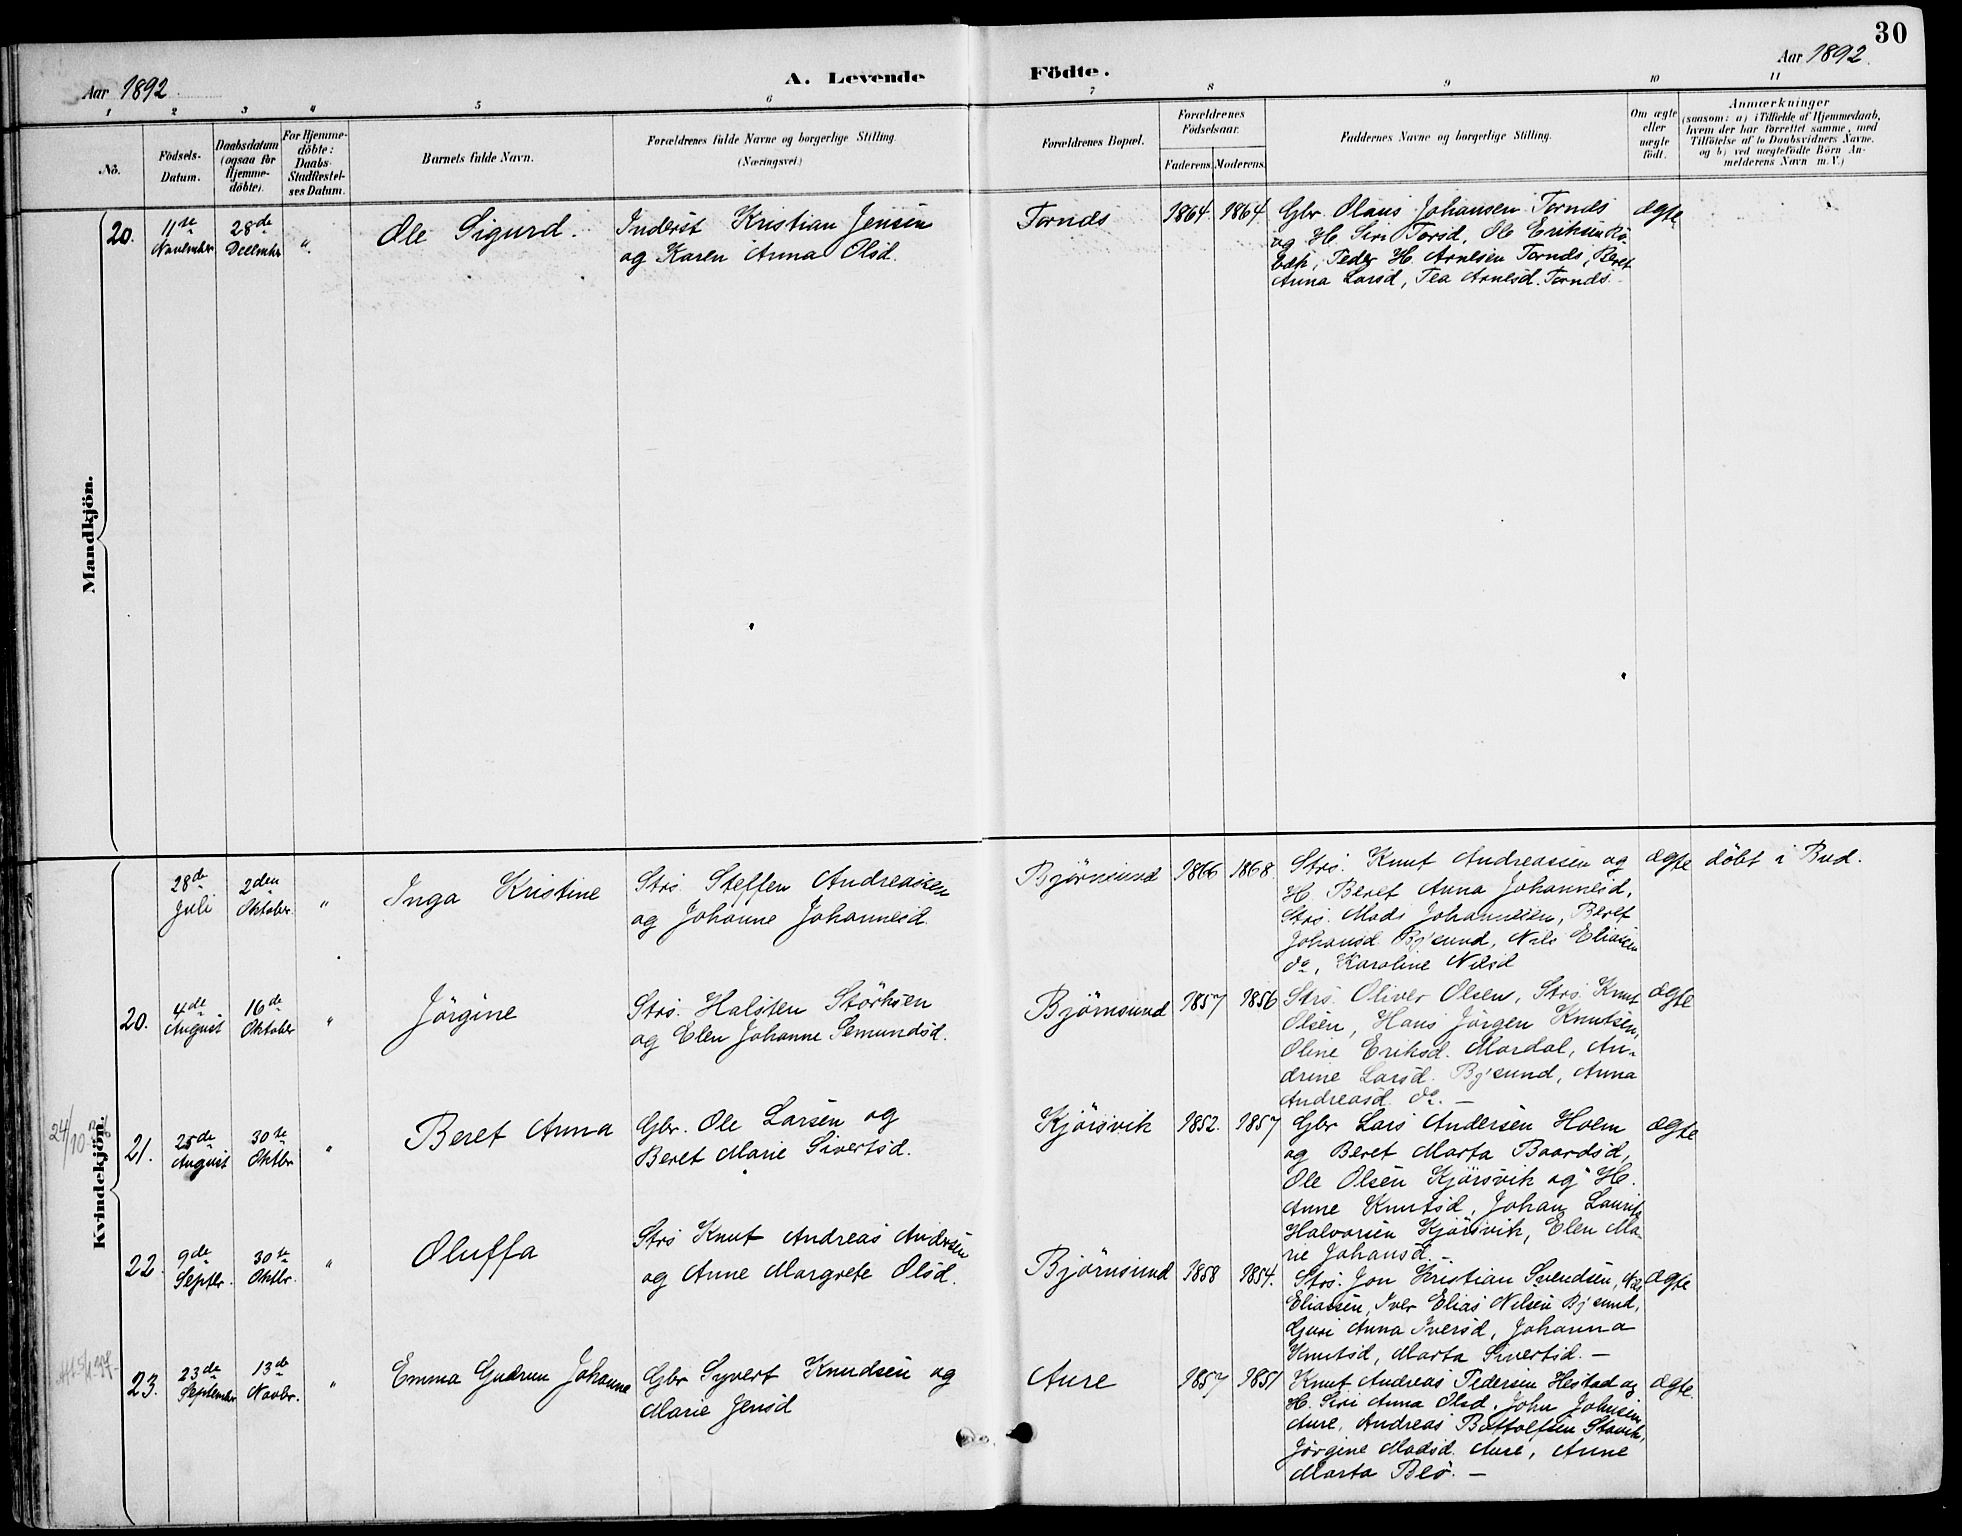 30
Aar 1892
A. Levende
Födte.
Aar 1892.
1 2 3 4 5 6 7 8 9 10 11
No.
Födsels-
Datum.
Daabsdatum
(ogsaa for
Hjemme-
döbte).
For Hjemme-
döbte:
Daabs-
Stadfæstel-
ses Datum.
Barnets fulde Navn.
Forældrenes fulde Navne og borgerlige Stilling.
(Næringsvei.)
Forældrenes Bopæl.
Forældrenes
Födselsaar.
Faderens. Moderens.
Faddernes Navne og borgerlige Stilling.
Om ægte
eller
uægte
födt.
Anmærkninger
(saasom: a) i Tilfælde af Hjemmedaab,
hvem der har forrettet samme, med
Tilföielse af to Daabsvidners Navne,
og b) ved uægtefödte Börn An-
melderens Navn m. V.)
Mandkjön.
20.
11te
November
28de
December
"
Ole Sigurd.
Inderst Kristian Jensen
og Karen Anna Olsd.
Tornds
1864. 1864.
Gbr. Olaus Johansen Tornds
og H. Siri Torsd, Ole Eriksen
Peder H. Arnesen Tornds, Beret
Anna Larsd, Tea Arnesd. Tornds.
ægte
Kvindekjön.
28de
Juli
2den
Oktober.
"
Inga Kristine
Strs. Steffen Andreassen
og Johanne Johannesd
Bjørnsund
1866 1868.
Strs. Knut Andreassen og
H. Beret Anna Johannesd,
Strs. Mads Johannesen, Beret
Johansd Bj'sund, Nils Eliassen
do, Karoline Nilsd
ægte
döbt i Bud.
20.
4de
August
16de
Oktober
"
Jörgine
Strs. Halsten Störksen
og Elen Johanne Semundsd.
Bjørnsund
1857 1856
Strs. Oliver Olsen, Strs. Knut
Olsen, Hans Jörgen Knutsen,
Oline Eriksd. Mordal, An-
drine Larsd. Bj'sund, Anna
Andreasd. do. —
ægte
24/10
21.
25de
August
30te
Oktbr
"
Beret Anna
Gbr. Ole Larsen og
Beret Marie Sivertsd.
Kjörsvik
1852. 1857
Gbr Lars Andersen Holm
og Beret Marta Baardsd,
Ole Olsen Kjörsvik og H.
Anne Knutsd, Johan Laurits
Halvorsen Kjörsvik, Elen Ma-
rie Johansd. —
ægte
22.
9de
Septbr.
30te
Oktbr.
"
Oluffa
Strs Knut Andreas Andersen
og Anne Margrete Olsd.
Bjørnsund
1858 1854.
Strs. Jon Kristian Svendsen, Nils
Eliassen, Iver Elias Nilsen Bj'sund,
Guri Anna Iversd, Johanna
Knutsd, Marta Sivertsd. —
ægte
23.
23de
September
13de
Novbr.
"
Emma Gudrun Johanne
Gbr Syvert Knudsen og
Marie Jensd
Aure
1857 1851
Knut Andreas Pedersen Hestad og
H. Siri Anna Olsd, John Johnsen
Aure, Andreas Bottolfsen Stavik,
Jörgine Madsd. Aure, Anne
Marta Blö. —
ægte.